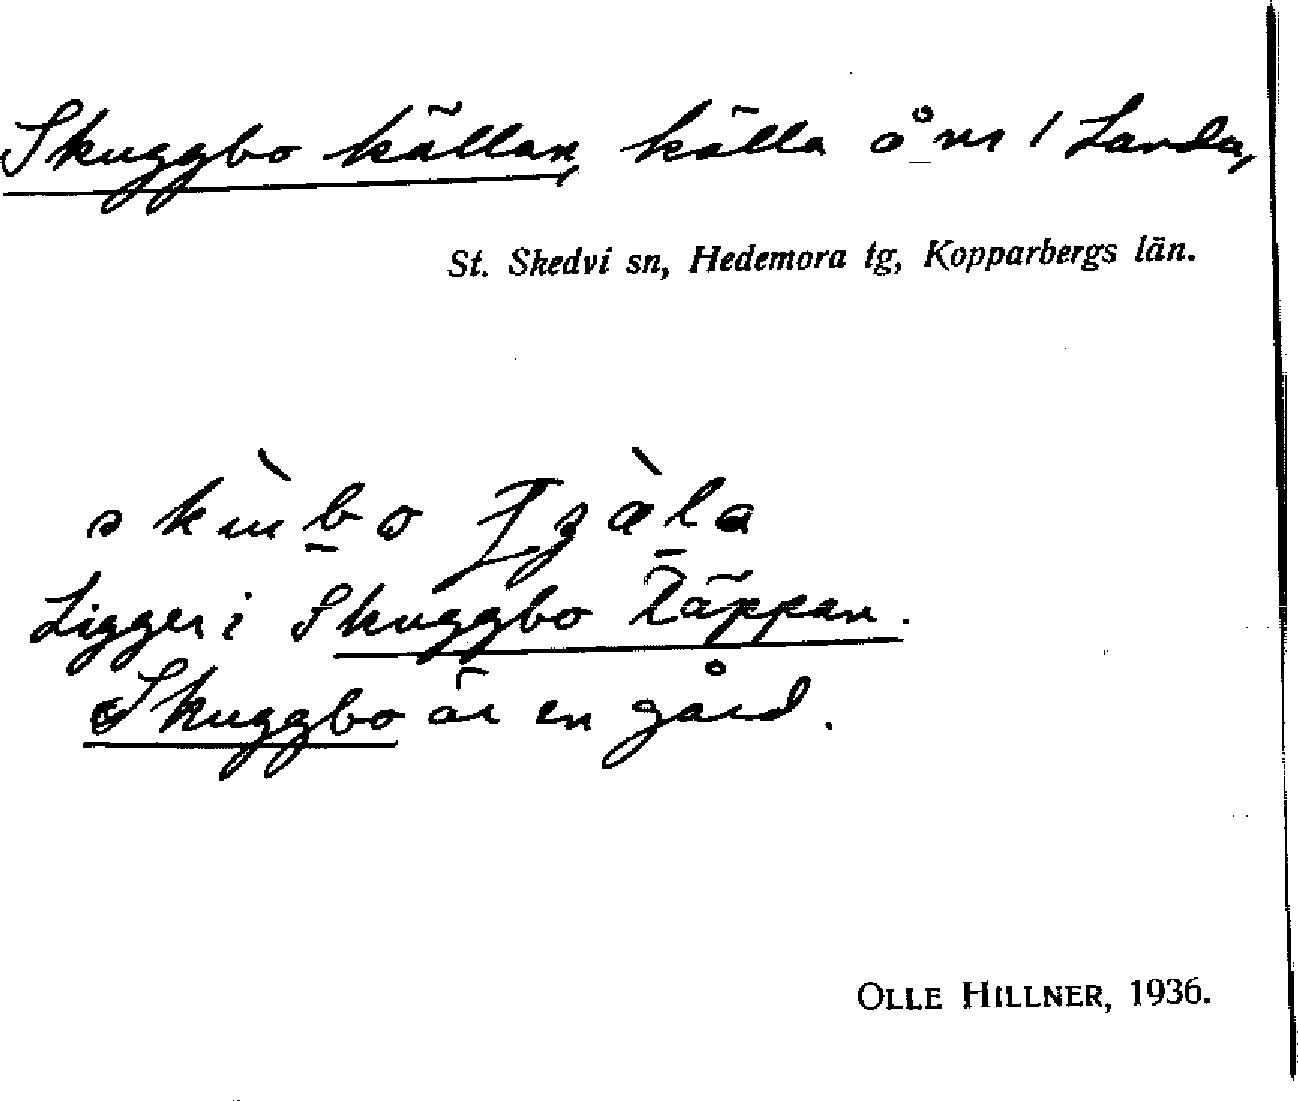 Skuggbo källan, källa å nr 1 Landa,
St. Skedvi sn, Hedemora tg, Kopparbergs län.
Ligger i Skuggbo täppan.
Skuggbo är en gård.
OLLE HILLNER, 1936.